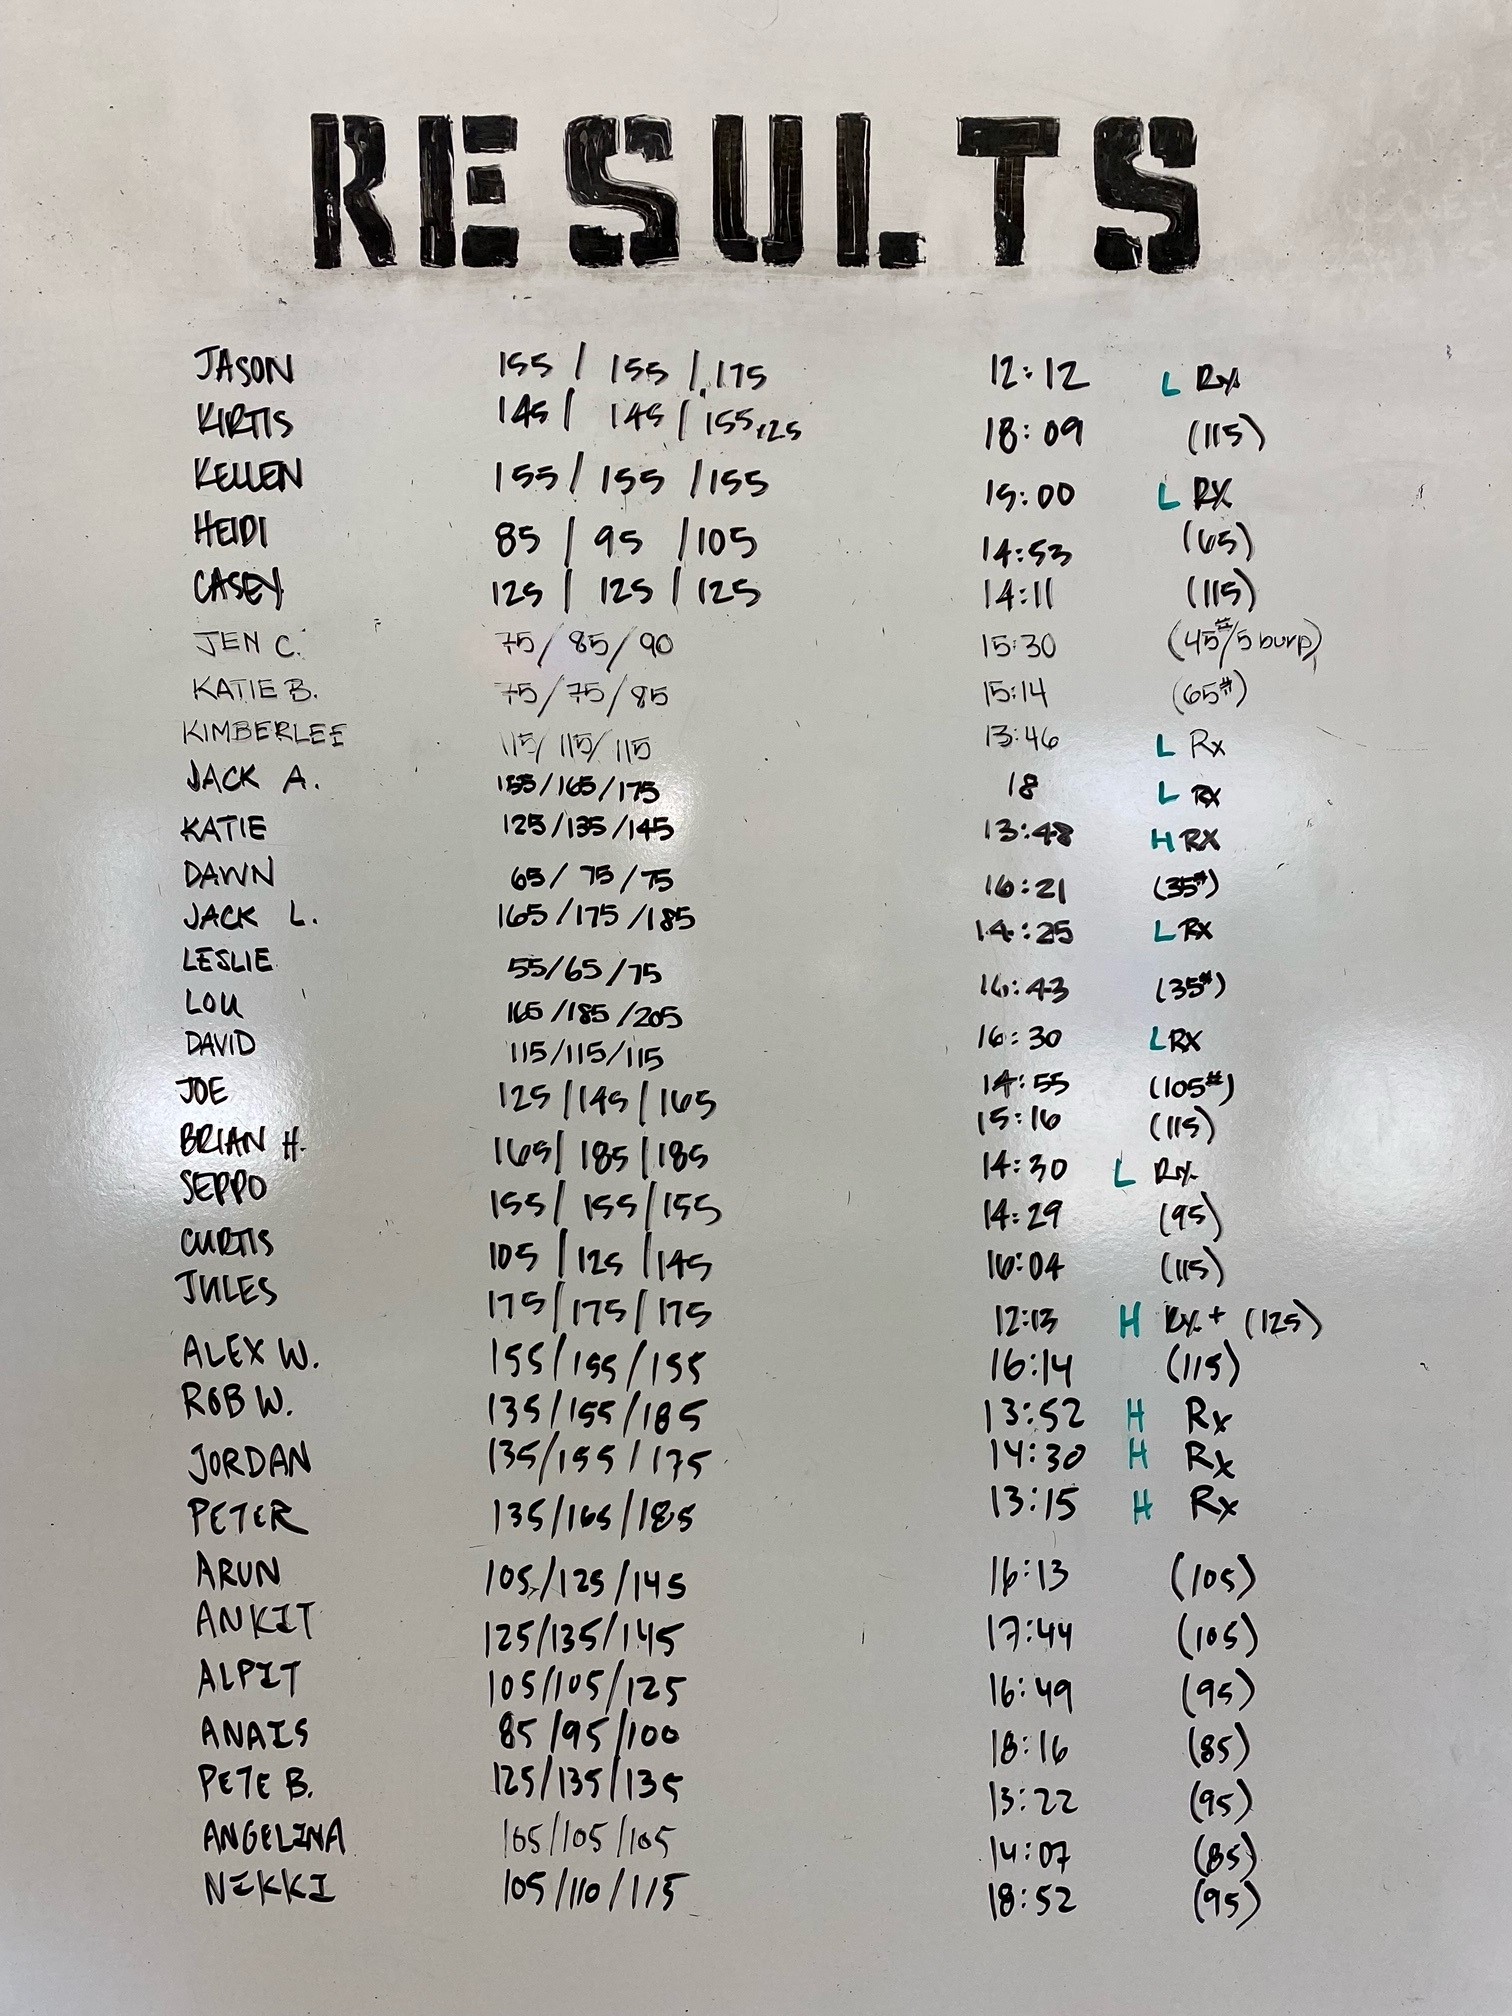 RESULTS
JASON 155 / 155 / 175 12:12 L Rx
KIRTIS 145 / 145 / 155,125 18:09 (115)
KELLEN 155 / 155 / 155 15:00 L RX
HEIDI 85 / 95 / 105 14:53 (65)
CASEY 125 / 125 / 125 14:11 (115)
JEN C. 75/85/90 15:30 (45#/5 burp)
KATIE B. 75/75/85 15:14 (65#)
KIMBERLEE 115/115/115 13:46 L Rx
JACK A. 155/165/175 18 L RX
KATIE 125/135/145 13:48 H RX
DAWN 65/75/75 16:21 (35#)
JACK L. 165/175/185 14:25 L RX
LESLIE 55/65/75 16:43 (35#)
LOU 165/185/205 16:30 L RX
DAVID 115/115/115 14:55 (105#)
JOE 125/145/165 15:16 (115)
BRIAN H. 165/185/185 14:30 L Rx
SEPPO 155/155/155 14:29 (95)
CURTIS 105/125/145 16:04 (115)
JULES 175/175/175 12:13 H Rx+ (125)
ALEX W. 155/155/155 16:14 (115)
ROB W. 135/155/185 13:52 H Rx
JORDAN 135/155/175 14:30 H Rx
PETER 135/165/185 13:15 H Rx
ARUN 105/125/145 16:13 (105)
ANKIT 125/135/145 17:44 (105)
ALPIT 105/105/125 16:49 (95)
ANAIS 85/95/100 18:16 (85)
PETE B. 125/135/135 13:22 (95)
ANGELINA 105/105/105 14:07 (85)
NIKKI 105/110/115 18:52 (95)